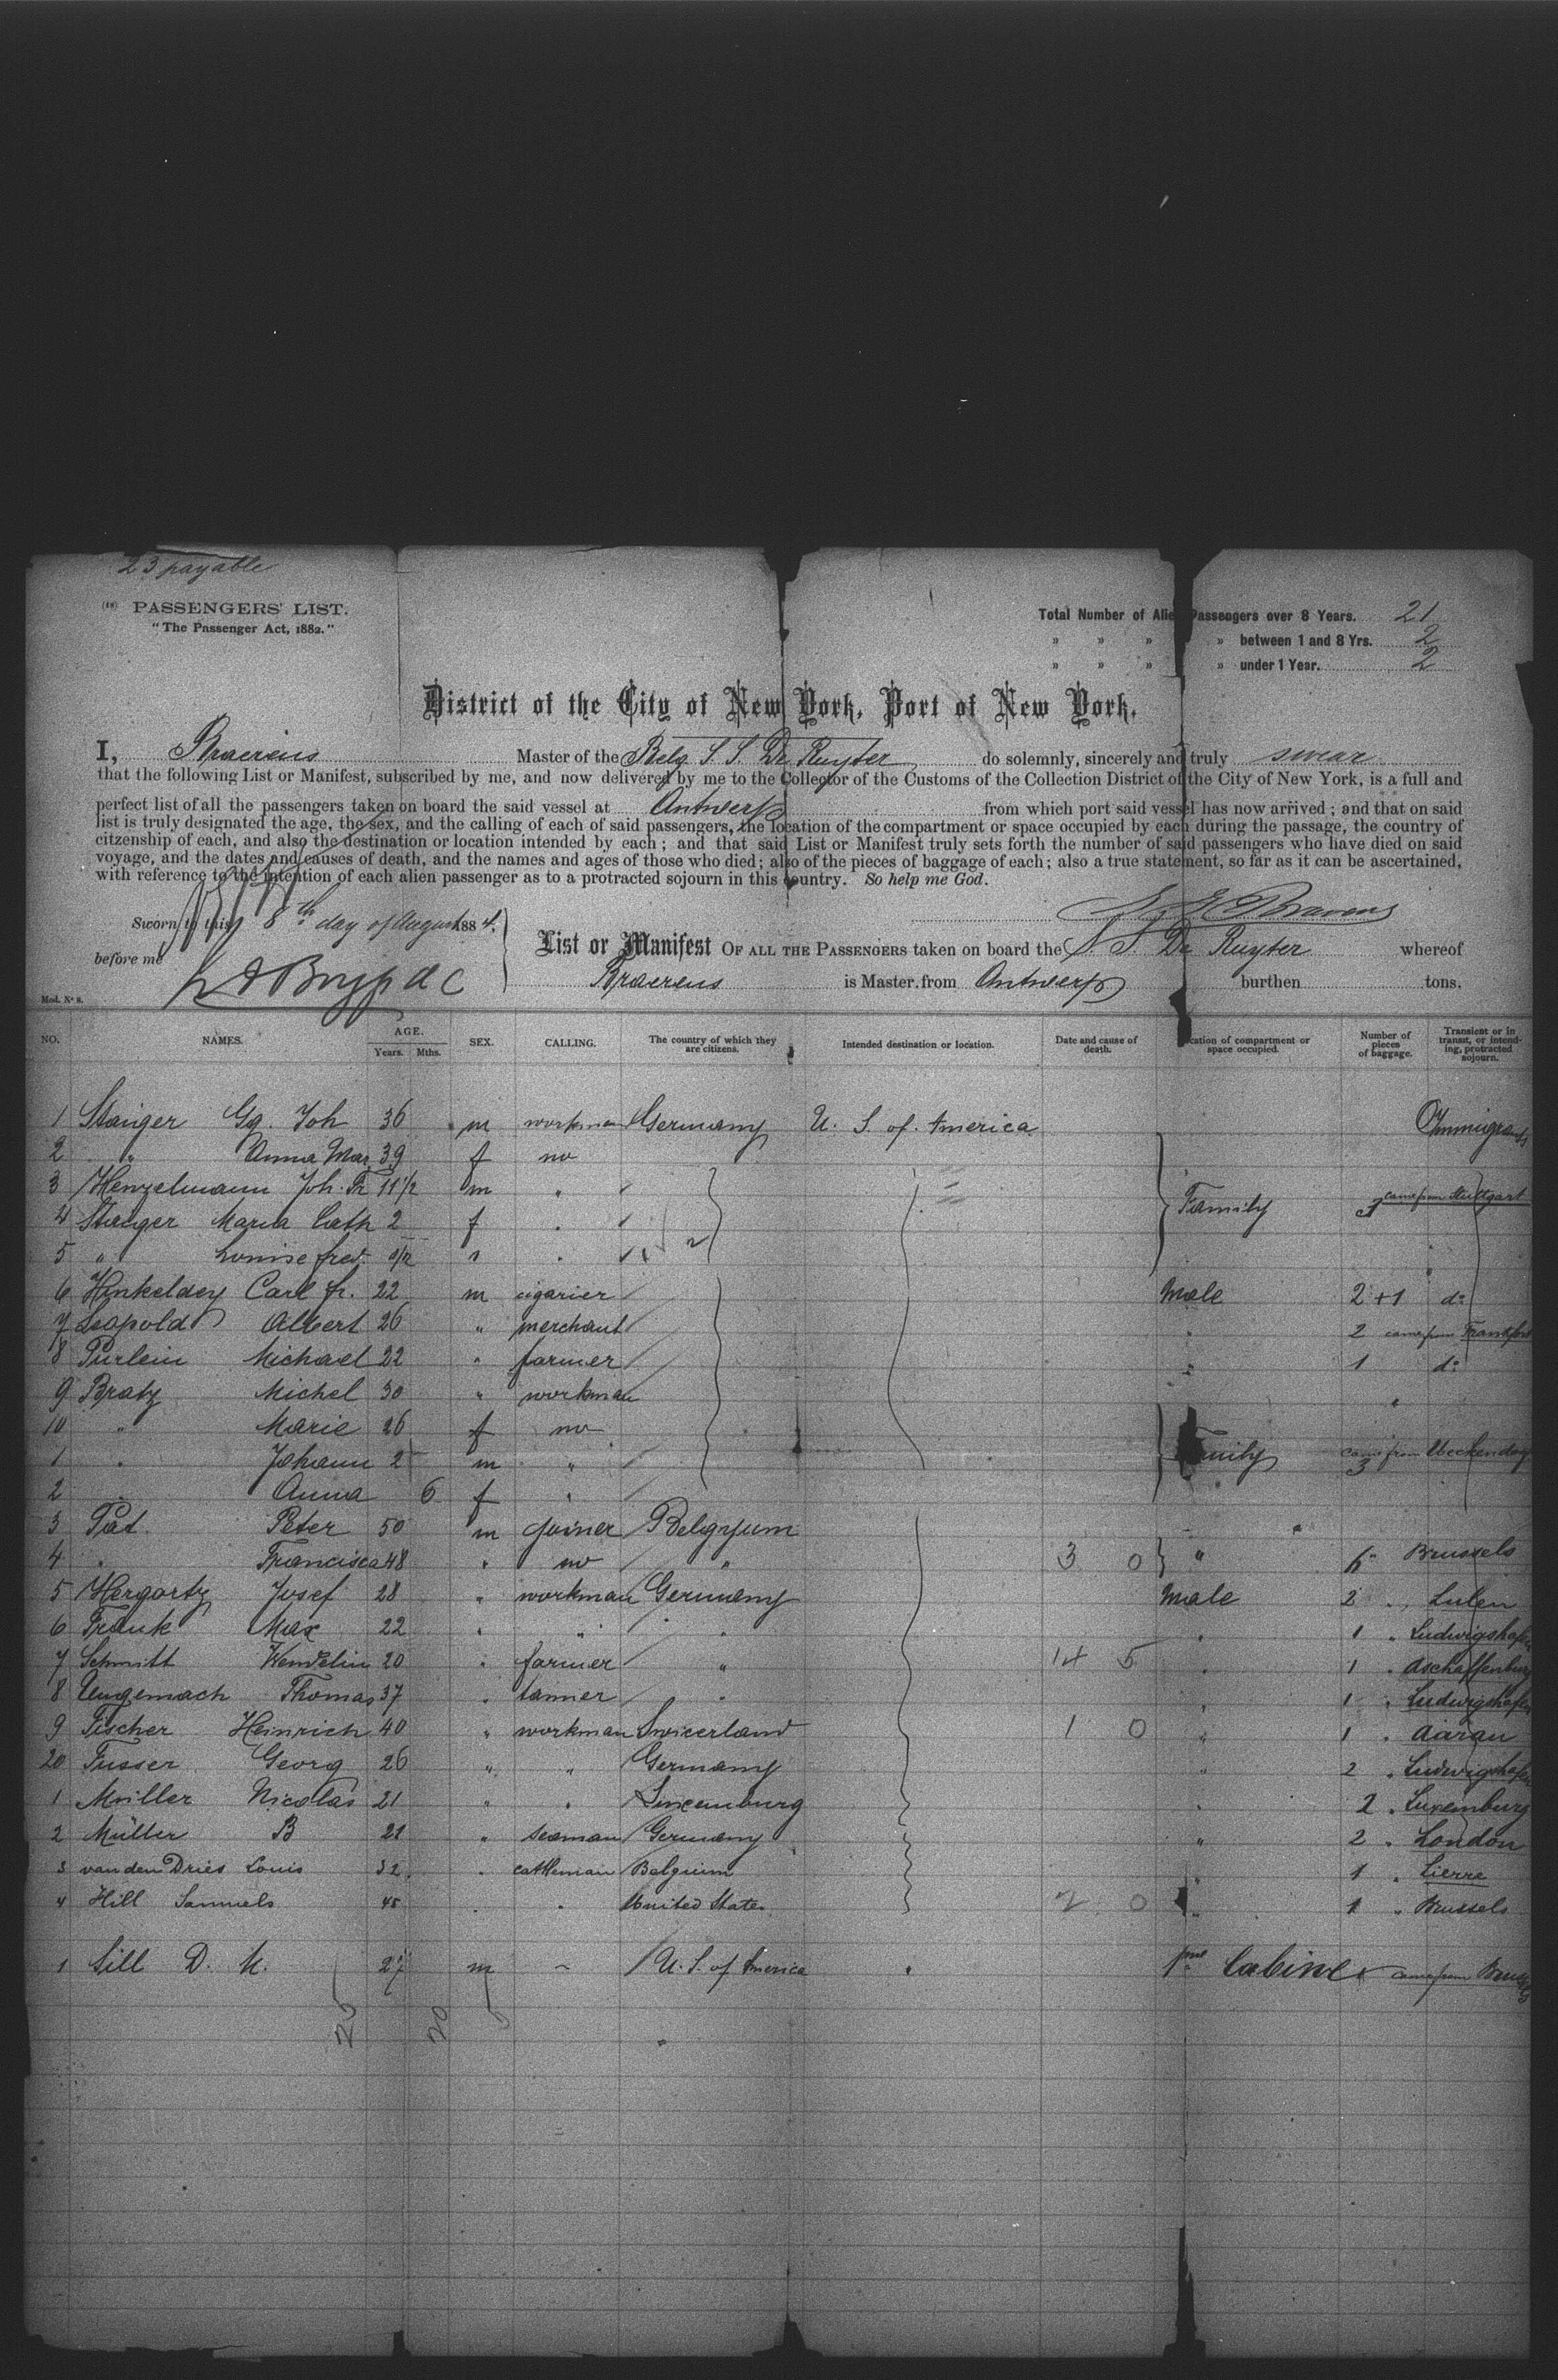 23 payable
(18) PASSENGERS' LIST.
"The Passenger Act, 1882."
Total Number of Alien Passengers over 8 Years. 21
" " " " between 1 and 8 Yrs. 2
" " " " under 1 Year. 2
District of the City of New York, Port of New York.
I, Braerens Master of the Belg S. S. De Ruyter do solemnly, sincerely and truly swear
that the following List or Manifest, subscribed by me, and now delivered by me to the Collector of the Customs of the Collection District of the City of New York, is a full and
perfect list of all the passengers taken on board the said vessel at Antwerp from which port said vessel has now arrived ; and that on said
list is truly designated the age, the sex, and the calling of each of said passengers, the location of the compartment or space occupied by each during the passage, the country of
citzenship of each, and also the destination or location intended by each ; and that said List or Manifest truly sets forth the number of said passengers who have died on said
voyage, and the dates and causes of death, and the names and ages of those who died ; also of the pieces of baggage of each ; also a true statement, so far as it can be ascertained,
with reference to the intention of each alien passenger as to a protracted sojourn in this country. So help me God.
Sworn to this 8th day of August 1884.
before me
List or Manifest OF ALL THE PASSENGERS taken on board the S. S. De Ruyter whereof
Braerens is Master, from Antwerp burthen tons.
Mod. No 8.
NO. NAMES. AGE. Years. Mths. SEX. CALLING. The country of which they are citizens. Intended destination or location. Date and cause of death. cation of compartment or space occupied. Number of pieces of baggage. Transient or in transit, or intending, protracted sojourn.
1 Staiger Gg. Joh 36 m workman Germany U. S. of America Immigrants
2 " Anna Mar 39 f no
3 Henzelmann Joh. Fr 11 1/2 m " Family 3 came from Stuttgart
4 Staiger Maria Cath 2 f "
5 " Louise fred. "
6 Hinkeldey Carl fr. 22 m cigarier Male 2 + 1 do
7 Leopold Albert 26 " merchant " 2 came from Frankfort
8 Pürlein Michael 22 " farmer " 1 do
9 Bratz Michel 30 " workman
10 " Marie 26 f no
1 " Johann 2 m " Family 3 came from
2 " Anna 6 f "
3 Pat Peter 50 m joiner Belgyum
4 " Francisca 48 " no " 3 0 " Brussels
5 Hergarty Josef 28 " workman Germany Male 2 "
6 Frank Max 22 " " " " 1 " Ludwigshafen
7 Schmitt Wendelin 20 " farmer " 14 5 " 1 " Aschaffenburg
8 Ungemach Thomas 37 " tanner " " 1 " Ludwigshafen
9 Fischer Heinrich 40 " workman Swicerland 1 0 " 1 " Aarau
20 Fusser Georg 26 " " Germany " 2 " Ludwigshafen
1 Müller Nicolas 21 " " Luxemburg " 2 " Luxemburg
2 Müller B 21 " seaman Germany " 2 " London
3 van den Dries Louis 32 " cattleman Belgium " 1 " Lierre
4 Hill Samuels 45 " " United States 2 0 " 1 " Brussels
1 Sill D. K. 27 m - U. S. of America 1me Cabine came from Brussels
25 20 5